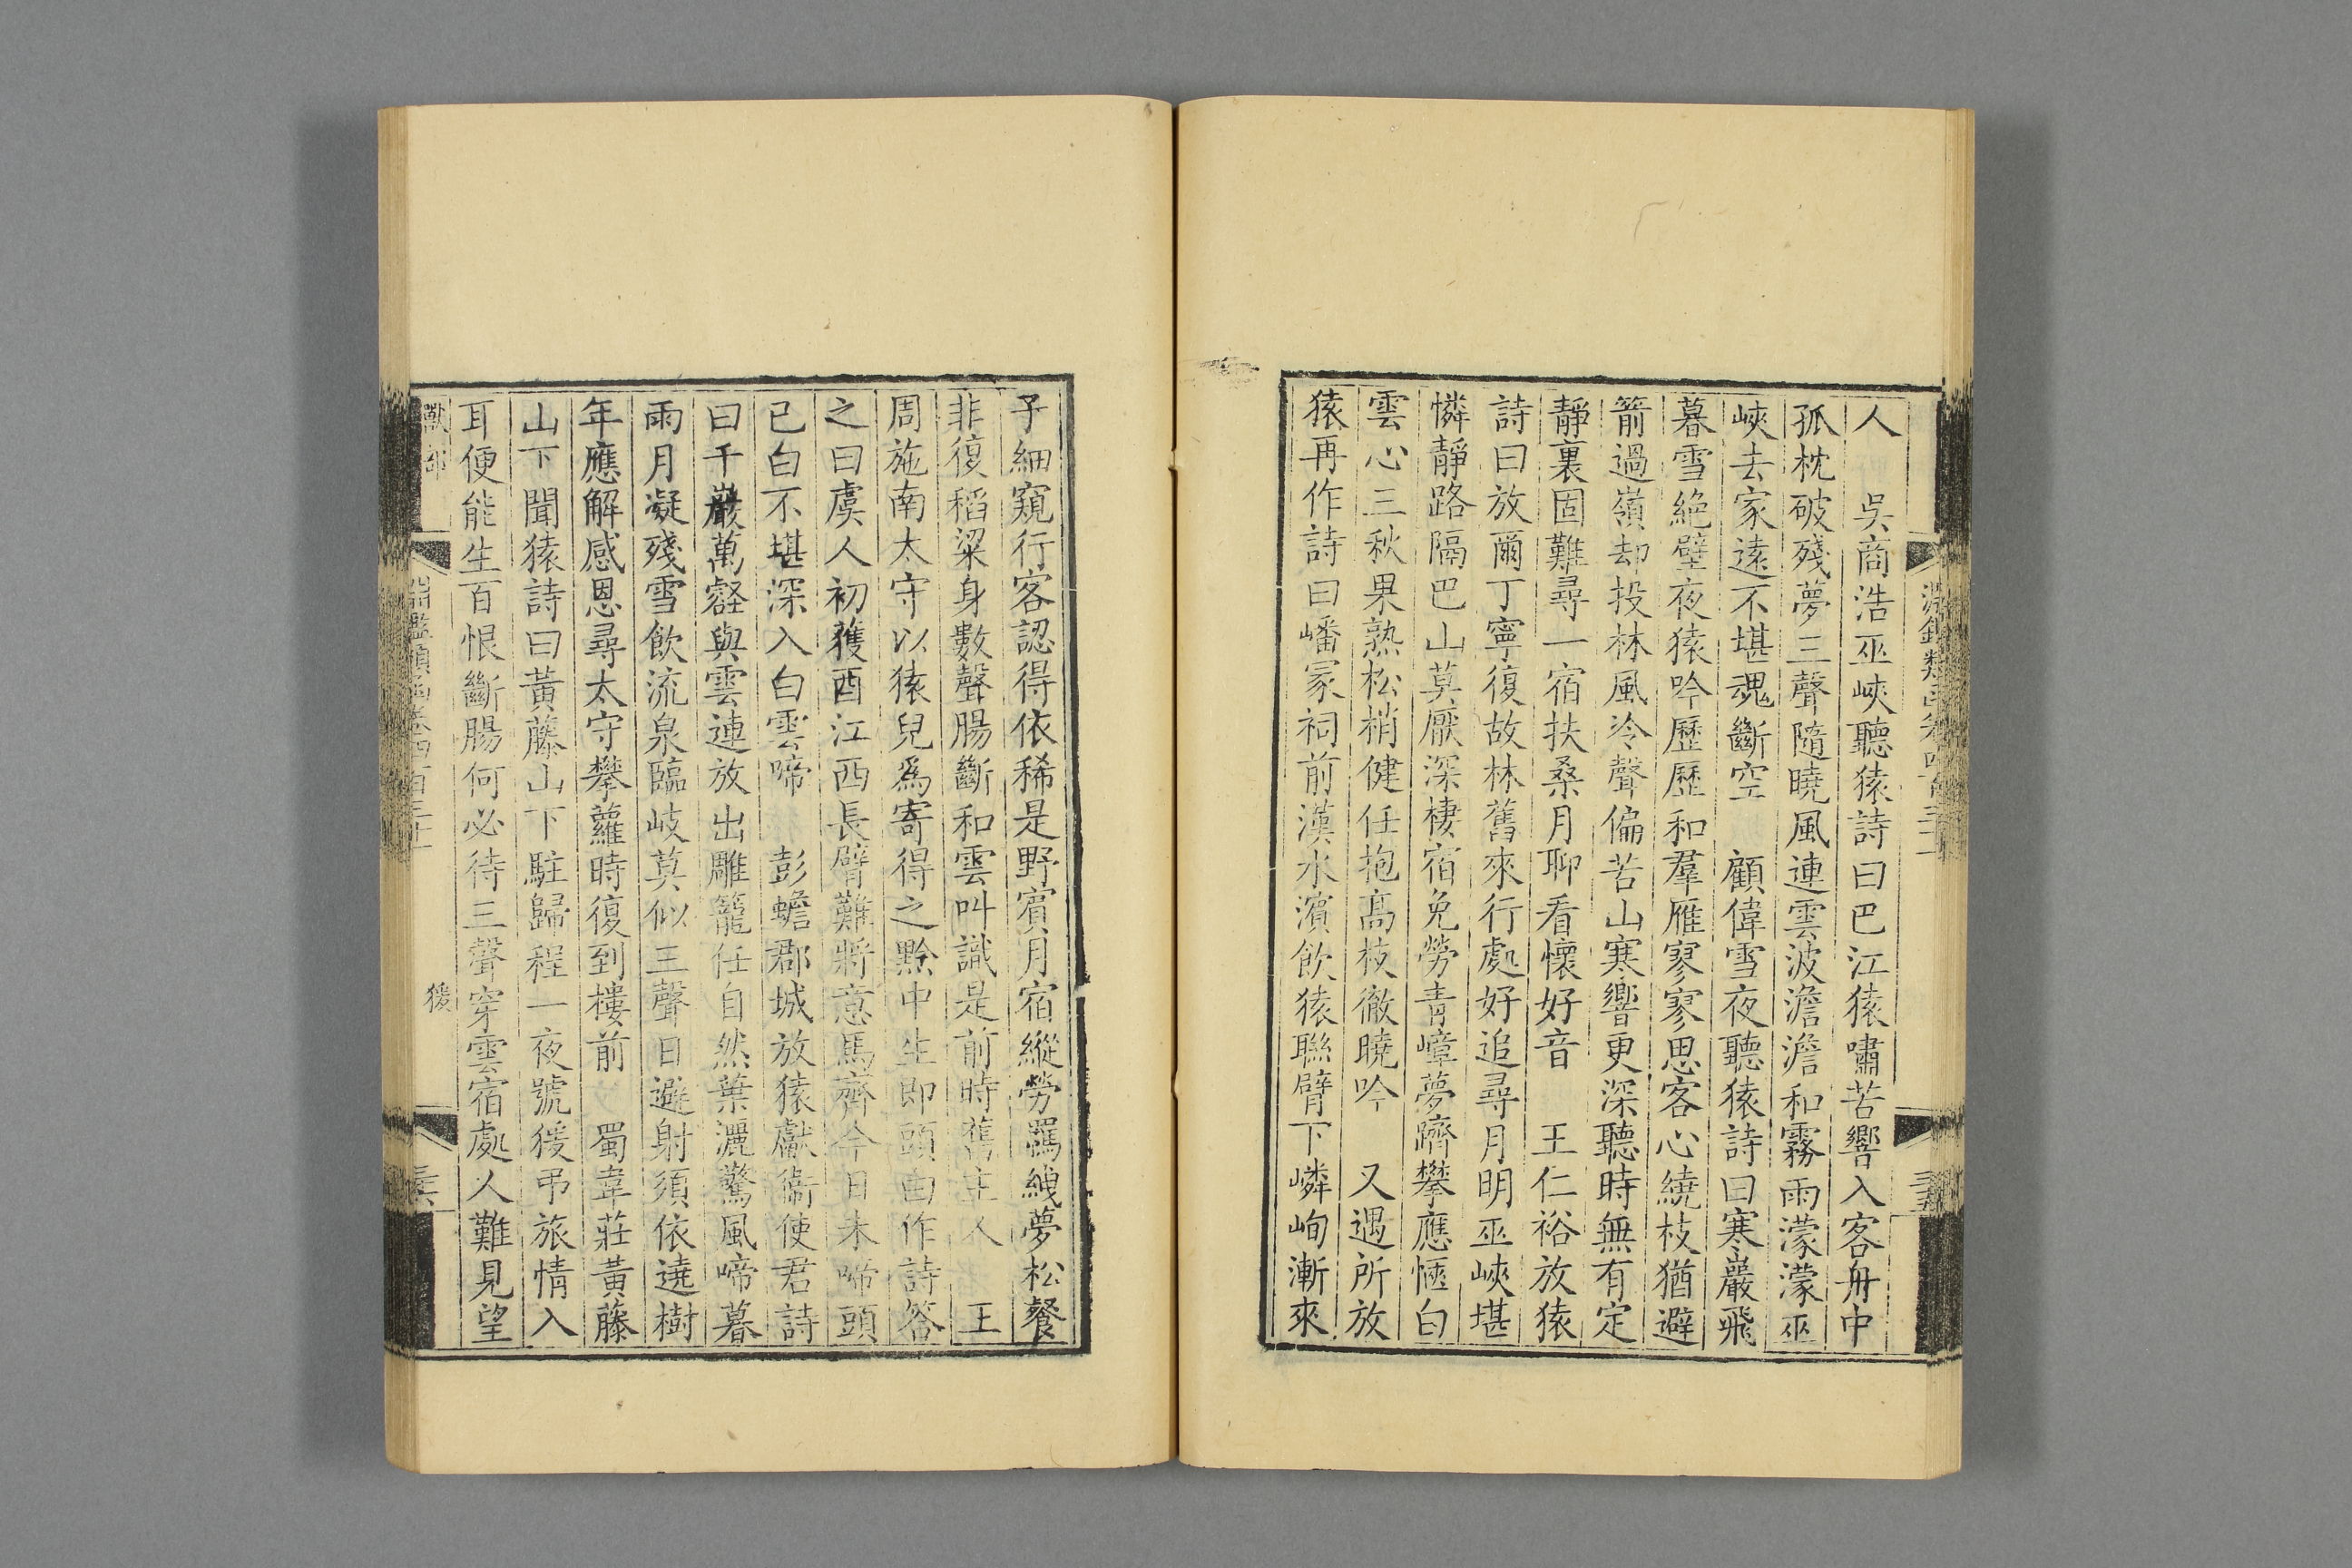 人　吳商浩巫峽聽猿詩曰巴江猿嘯苦響入客舟中
孤枕破殘夢三聲隨曉風連雲波澹澹和霧雨濛濛巫
峽去家遠不堪魂斷空　顧偉雪夜聽猿詩曰寒巖飛
暮雪絶壁夜猿吟歷歷和羣雁寥寥思客心繞枝猶避
箭過嶺却投林風冷聲偏苦山寒響更深聽時無有定
靜裏固難尋一宿扶桑月聊看懷好音　王仁裕放猿
詩曰放爾丁寧復故林舊來行處好追尋月明巫峽堪
憐靜路隔巴山莫厭深棲宿免勞青嶂夢躋攀應愜白
雲心三秋果熟松梢健任抱高枝徹曉吟　又遇所放
猿再作詩曰嶓冢祠前漢水濱飲猿聯臂下嶙峋漸來
子細窺行客認得依稀是野賓月宿縱勞羈緤夢松餐
非復稻粱身數聲腸斷和雲叫識是前時舊主人　王
周施南太守以猿兒爲寄得之黔中生即頭白作詩答
之曰虞人初獲酉江西長臂難將意馬齊今日未啼頭
已白不堪深入白雲啼　彭蟾郡城放猿獻衞使君詩
曰千巖萬壑與雲連放出雕籠任自然葉灑驚風啼暮
雨月凝殘雪飲流泉臨岐莫似三聲日避射須依遶樹
年應解感恩尋太守攀蘿時復到樓前　蜀韋莊黃藤
山下聞猿詩曰黃藤山下駐歸程一夜號猨弔旅情入
耳便能生百恨斷腸何必待三聲穿雲宿處人難見望
獸部
淵鑑類函卷四百三十一
猨